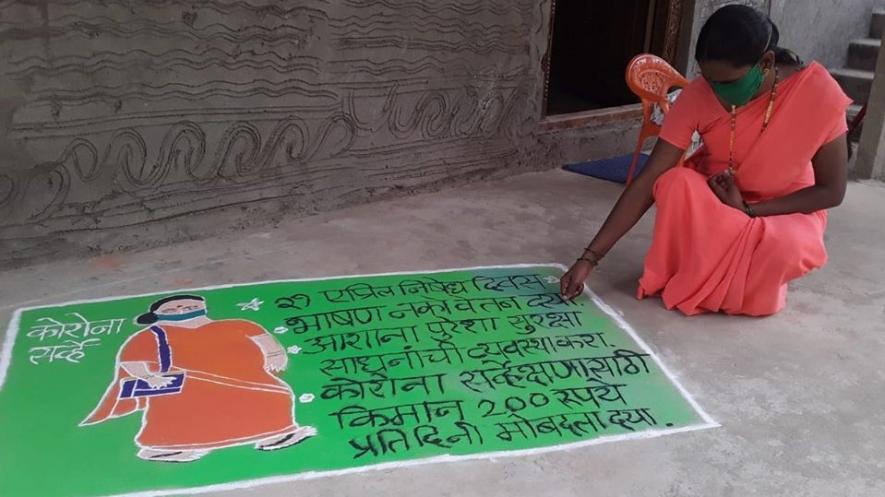 कोरोना
सर्व्हे
२९ एप्रिल निषेध दिवस
भाषण नको वेतन द्या
आशांना पुरेशा सुरक्षा
साधनांची व्यवस्था करा.
कोरोना सर्व्हेक्षणासाठी
किमान 200 रुपये
प्रतिदिनी मोबदला द्या.